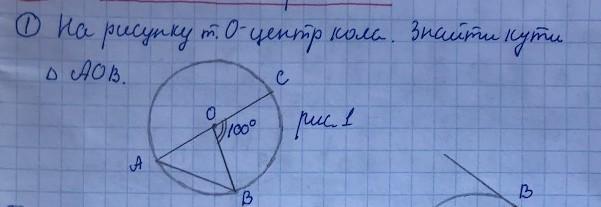 ① На рисунку т. О-центр кола. Знайти кути
△ АОВ.
C
O
100°
рис. 1
A
B
B